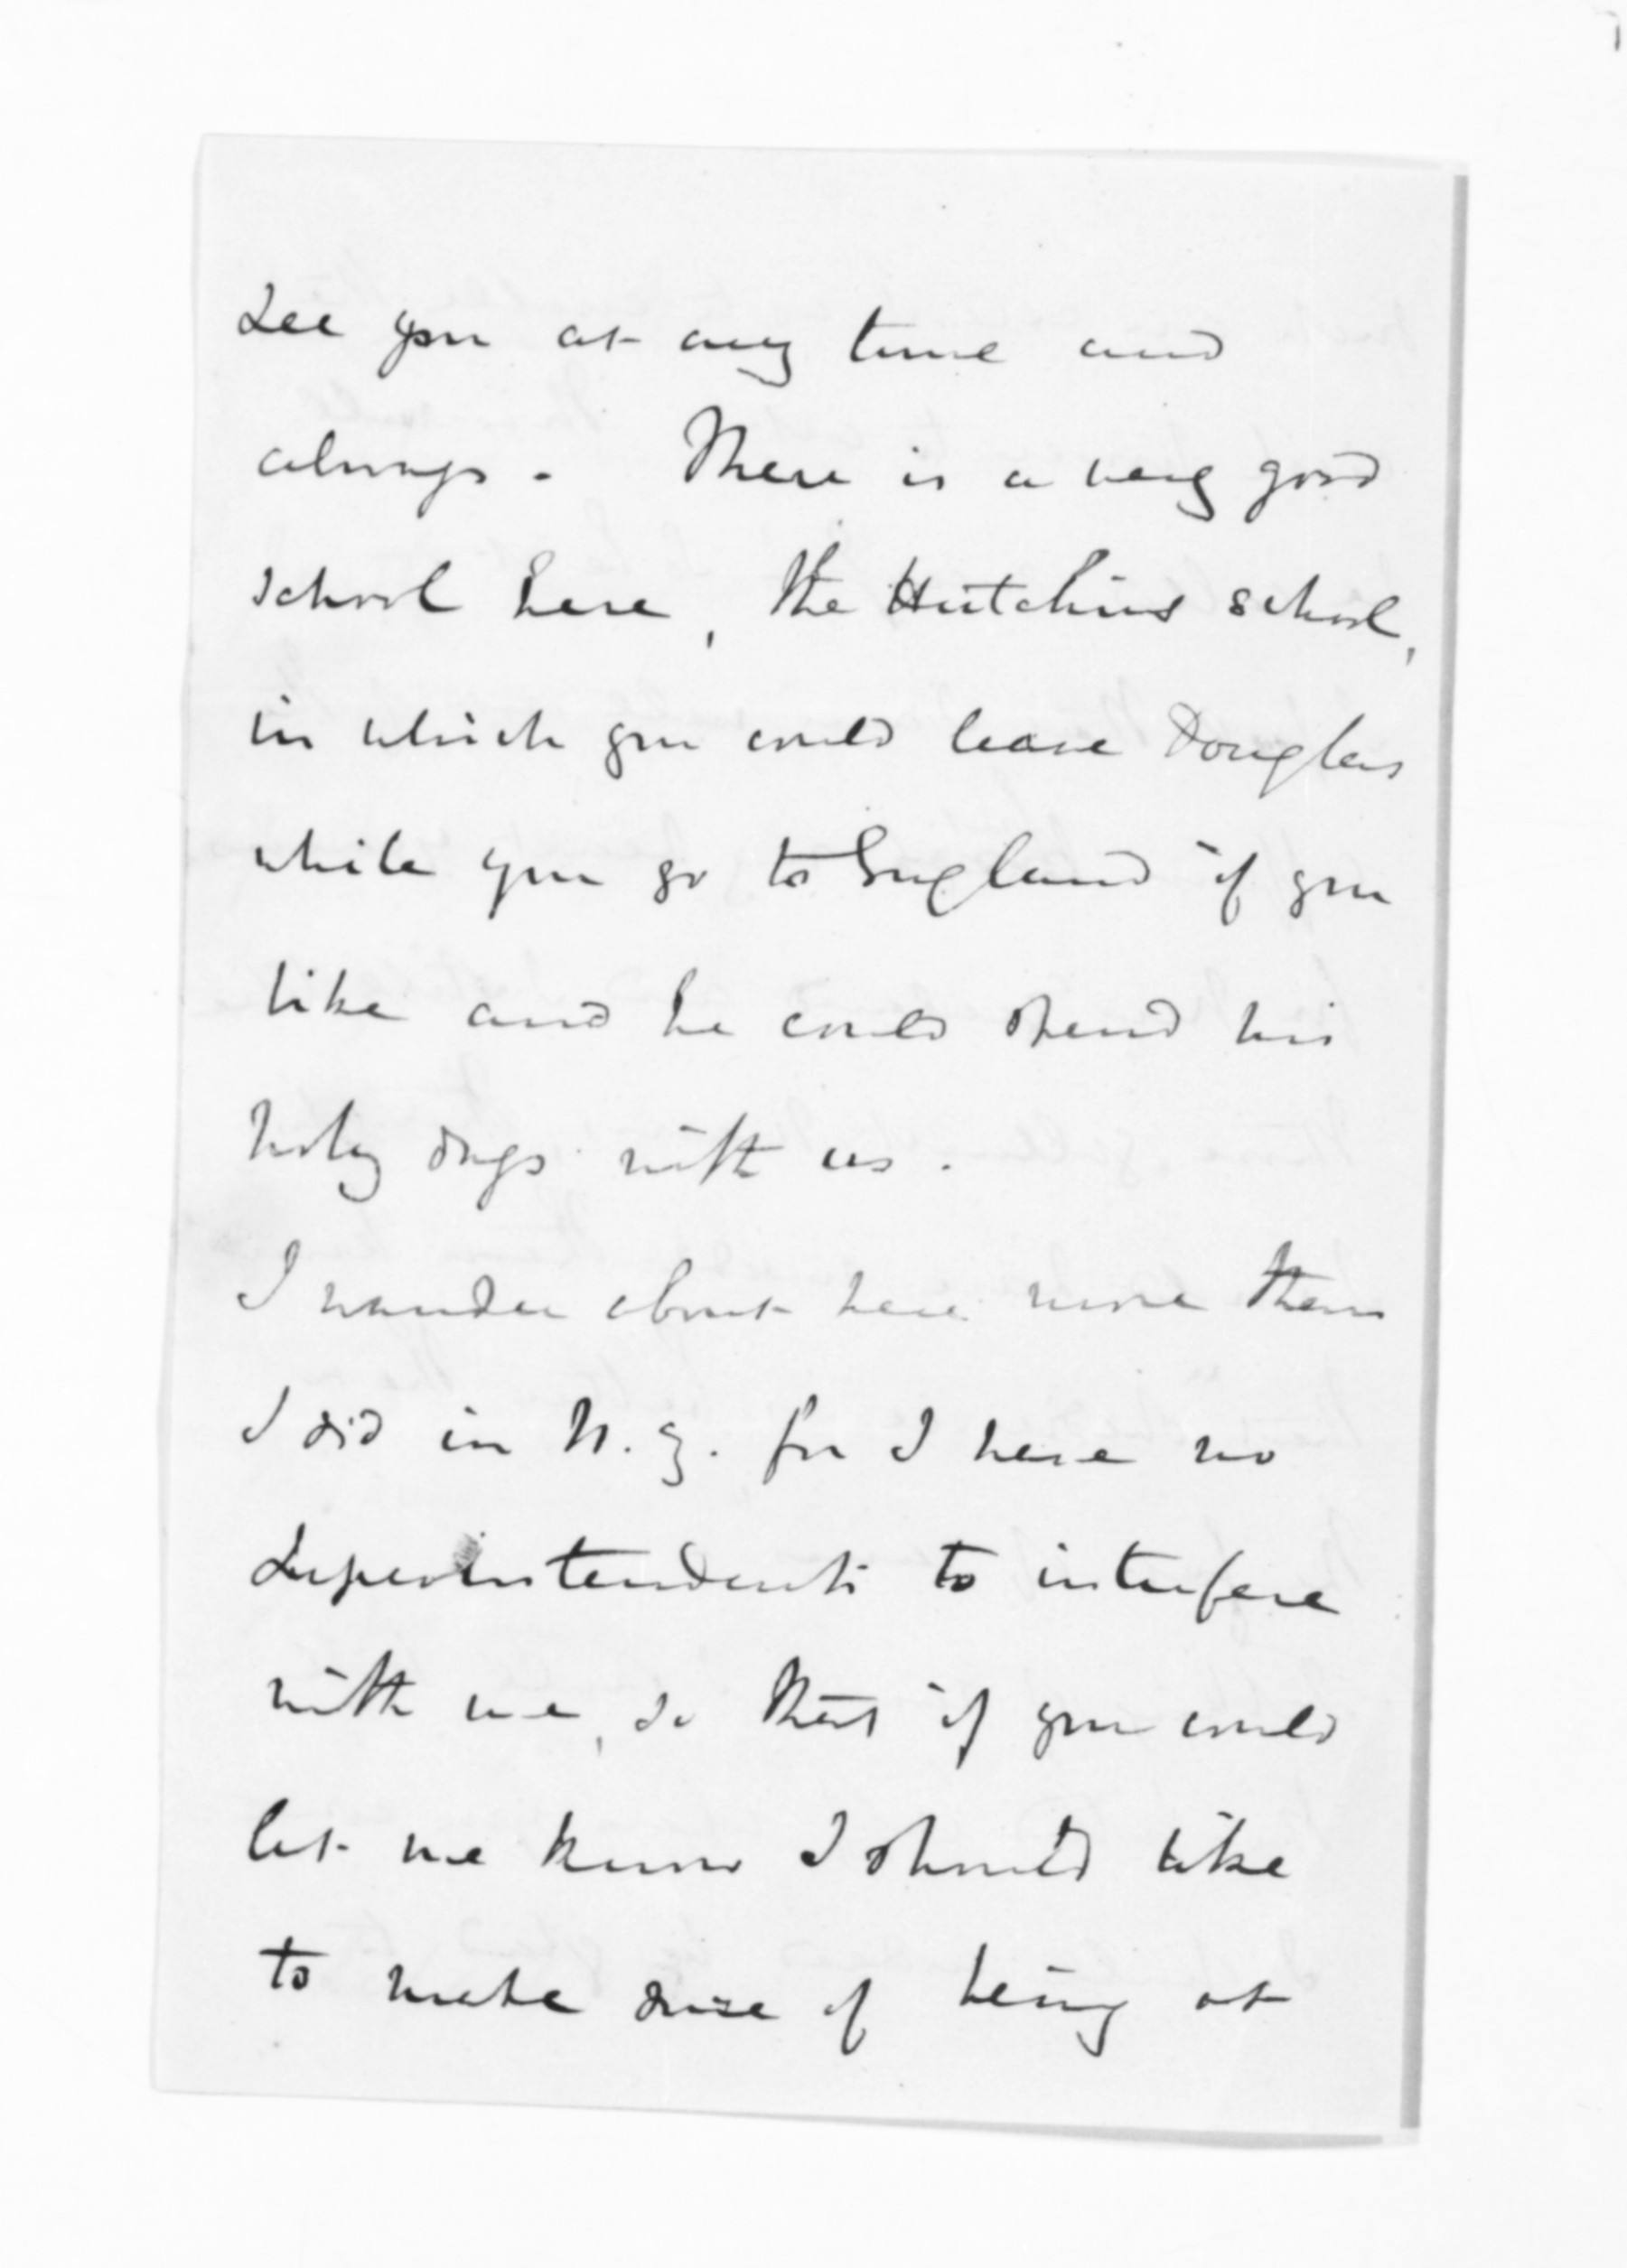 see you at any time and
always. There is a very good
school here, the Hutchins school,
in which you could leave Douglas
while you go to England if you
like and he could spend his
holy days with us.
I wander about here more than
I did in N.Z. for I have no
Superintendents to interfere
with me, so that if you could
let me know I should like
to make sure of being at